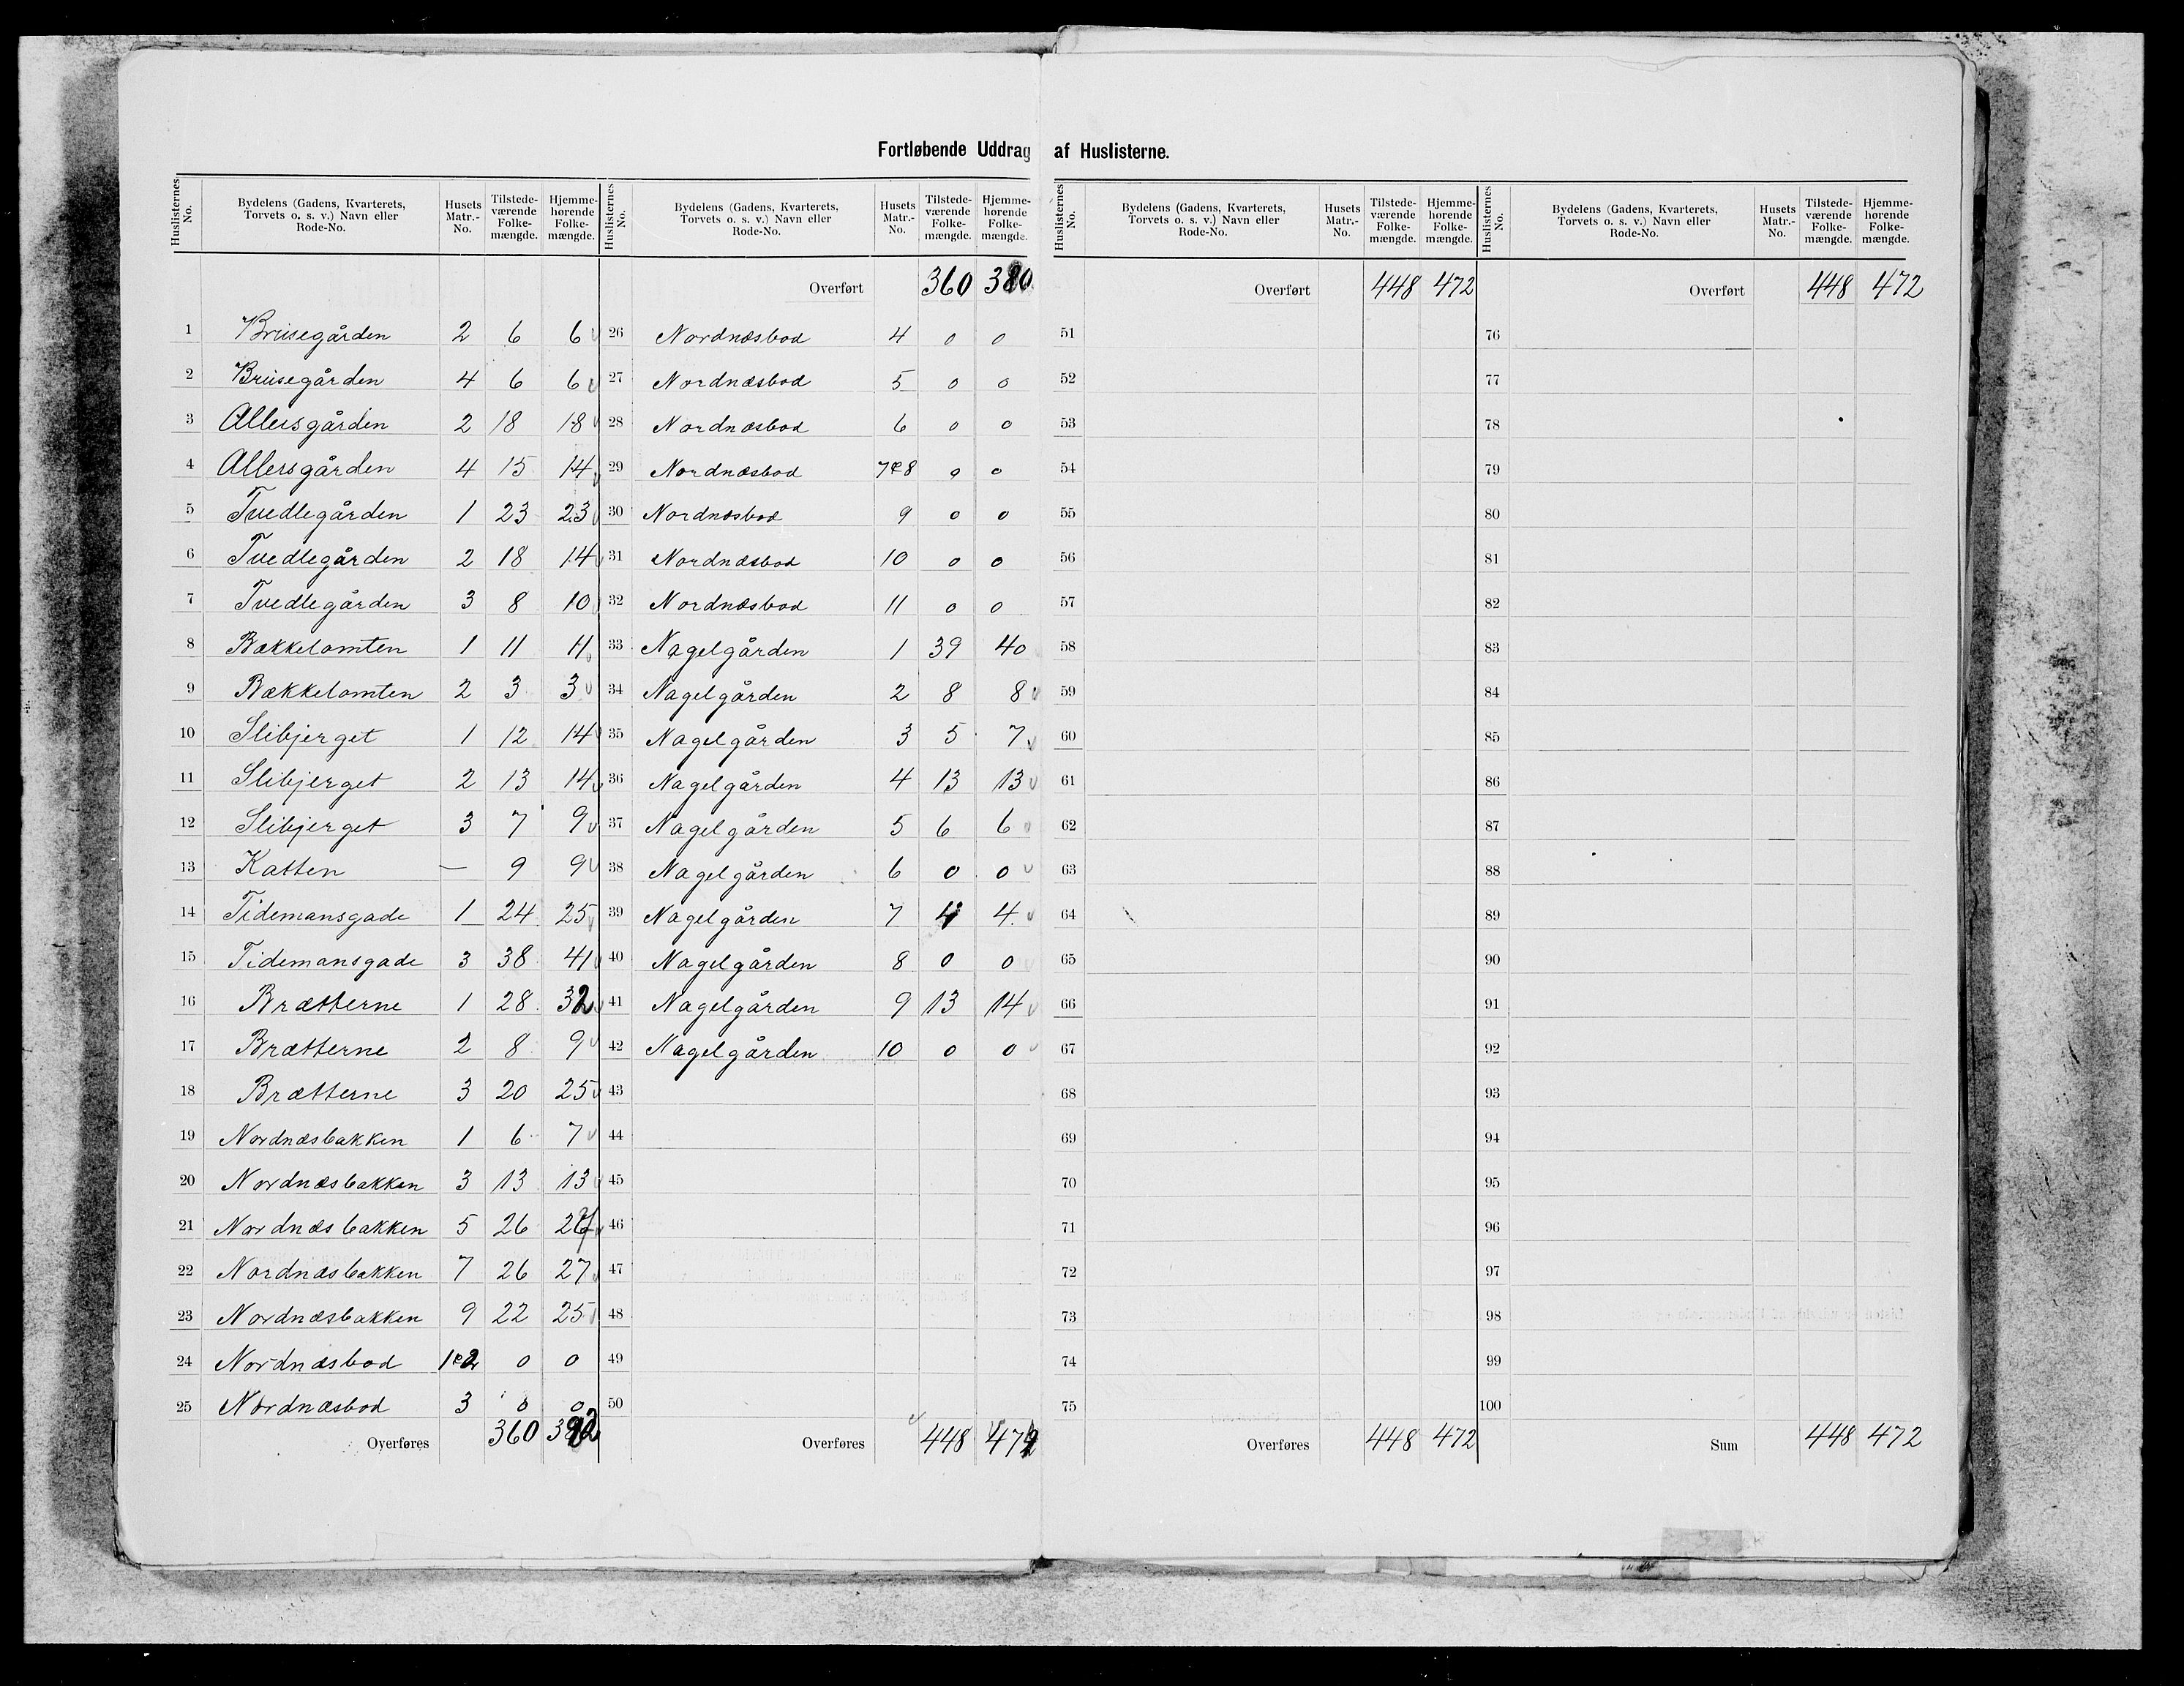 Fortløbende Uddrag af Huslisterne.
Huslisternes No. Bydelens (Gadens, Kvarterets, Torvets o. s. v.) Navn eller Rode-No. Husets Matr.-No. Tilstede-værende Folke-mængde. Hjemme-hørende Folke-mængde.
1 Briisegården 2 6 6
2 Briisegården 4 6 6
3 Allersgården 2 18 18
4 Allersgården 4 15 14
5 Tvedlegården 1 23 23
6 Tvedlegården 2 18 14
7 Tvedlegården 3 8 10
8 Bækkelomten 1 11 11
9 Bækkelomten 2 3 3
10 Slibjerget 1 12 14
11 Slibjerget 2 13 14
12 Slibjerget 3 7 9
13 Katten — 9 9
14 Tidemansgade 1 24 25
15 Tidemansgade 3 38 41
16 Brætterne 1 28 32
17 Brætterne 2 8 9
18 Brætterne 3 20 25
19 Nordnæsbakken 1 6 7
20 Nordnæsbakken 3 13 13
21 Nordnæsbakken 5 26
22 Nordnæsbakken 7 26 27
23 Nordnæsbakken 9 22 25
24 Nordnæsbod 1&2 0 0
25 Nordnæsbod 3 0 0
Overføres 360
Huslisternes No. Bydelens (Gadens, Kvarterets, Torvets o. s. v.) Navn eller Rode-No. Husets Matr.-No. Tilstede-værende Folke-mængde. Hjemme-hørende Folke-mængde.
Overført 360
26 Nordnæsbod 4 0 0
27 Nordnæsbod 5 0 0
28 Nordnæsbod 6 0 0
29 Nordnæsbod 7&8 0 0
30 Nordnæsbod 9 0 0
31 Nordnæsbod 10 0 0
32 Nordnæsbod 11 0 0
33 Nagelgården 1 39 40
34 Nagelgården 2 8 8
35 Nagelgården 3 5 7
36 Nagelgården 4 13 13
37 Nagelgården 5 6 6
38 Nagelgården 6 0 0
39 Nagelgården 7 4 4
40 Nagelgården 8 0 0
41 Nagelgården 9 13 14
42 Nagelgården 10 0 0
43
44
45
46
47
48
49
50
Overføres 448
Huslisternes No. Bydelens (Gadens, Kvarterets, Torvets o. s. v.) Navn eller Rode-No. Husets Matr.-No. Tilstede-værende Folke-mængde. Hjemme-hørende Folke-mængde.
Overført 448 472
51
52
53
54
55
56
57
58
59
60
61
62
63
64
65
66
67
68
69
70
71
72
73
74
75
Overføres 448 472
Huslisternes No. Bydelens (Gadens, Kvarterets, Torvets o. s. v.) Navn eller Rode-No. Husets Matr.-No. Tilstede-værende Folke-mængde. Hjemme-hørende Folke-mængde.
Overført 448 472
76
77
78
79
80
81
82
83
84
85
86
87
88
89
90
91
92
93
94
95
96
97
98
99
100
Sum 448 472